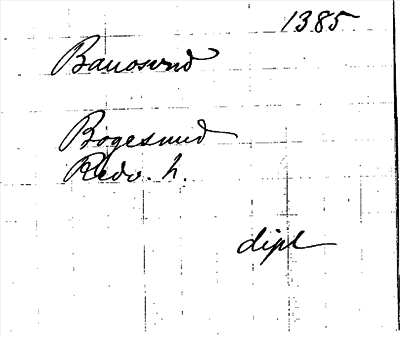 1385
Bauosund
Bogesund
Redv. h.
dipl